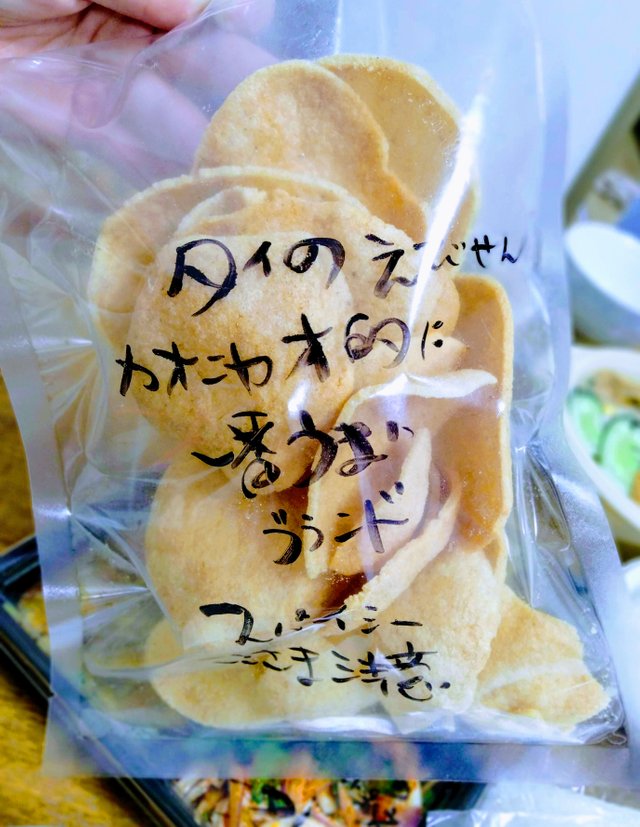 タイの えびせん
カオニャオ的に
一番うまい
ブランド
スパイシー